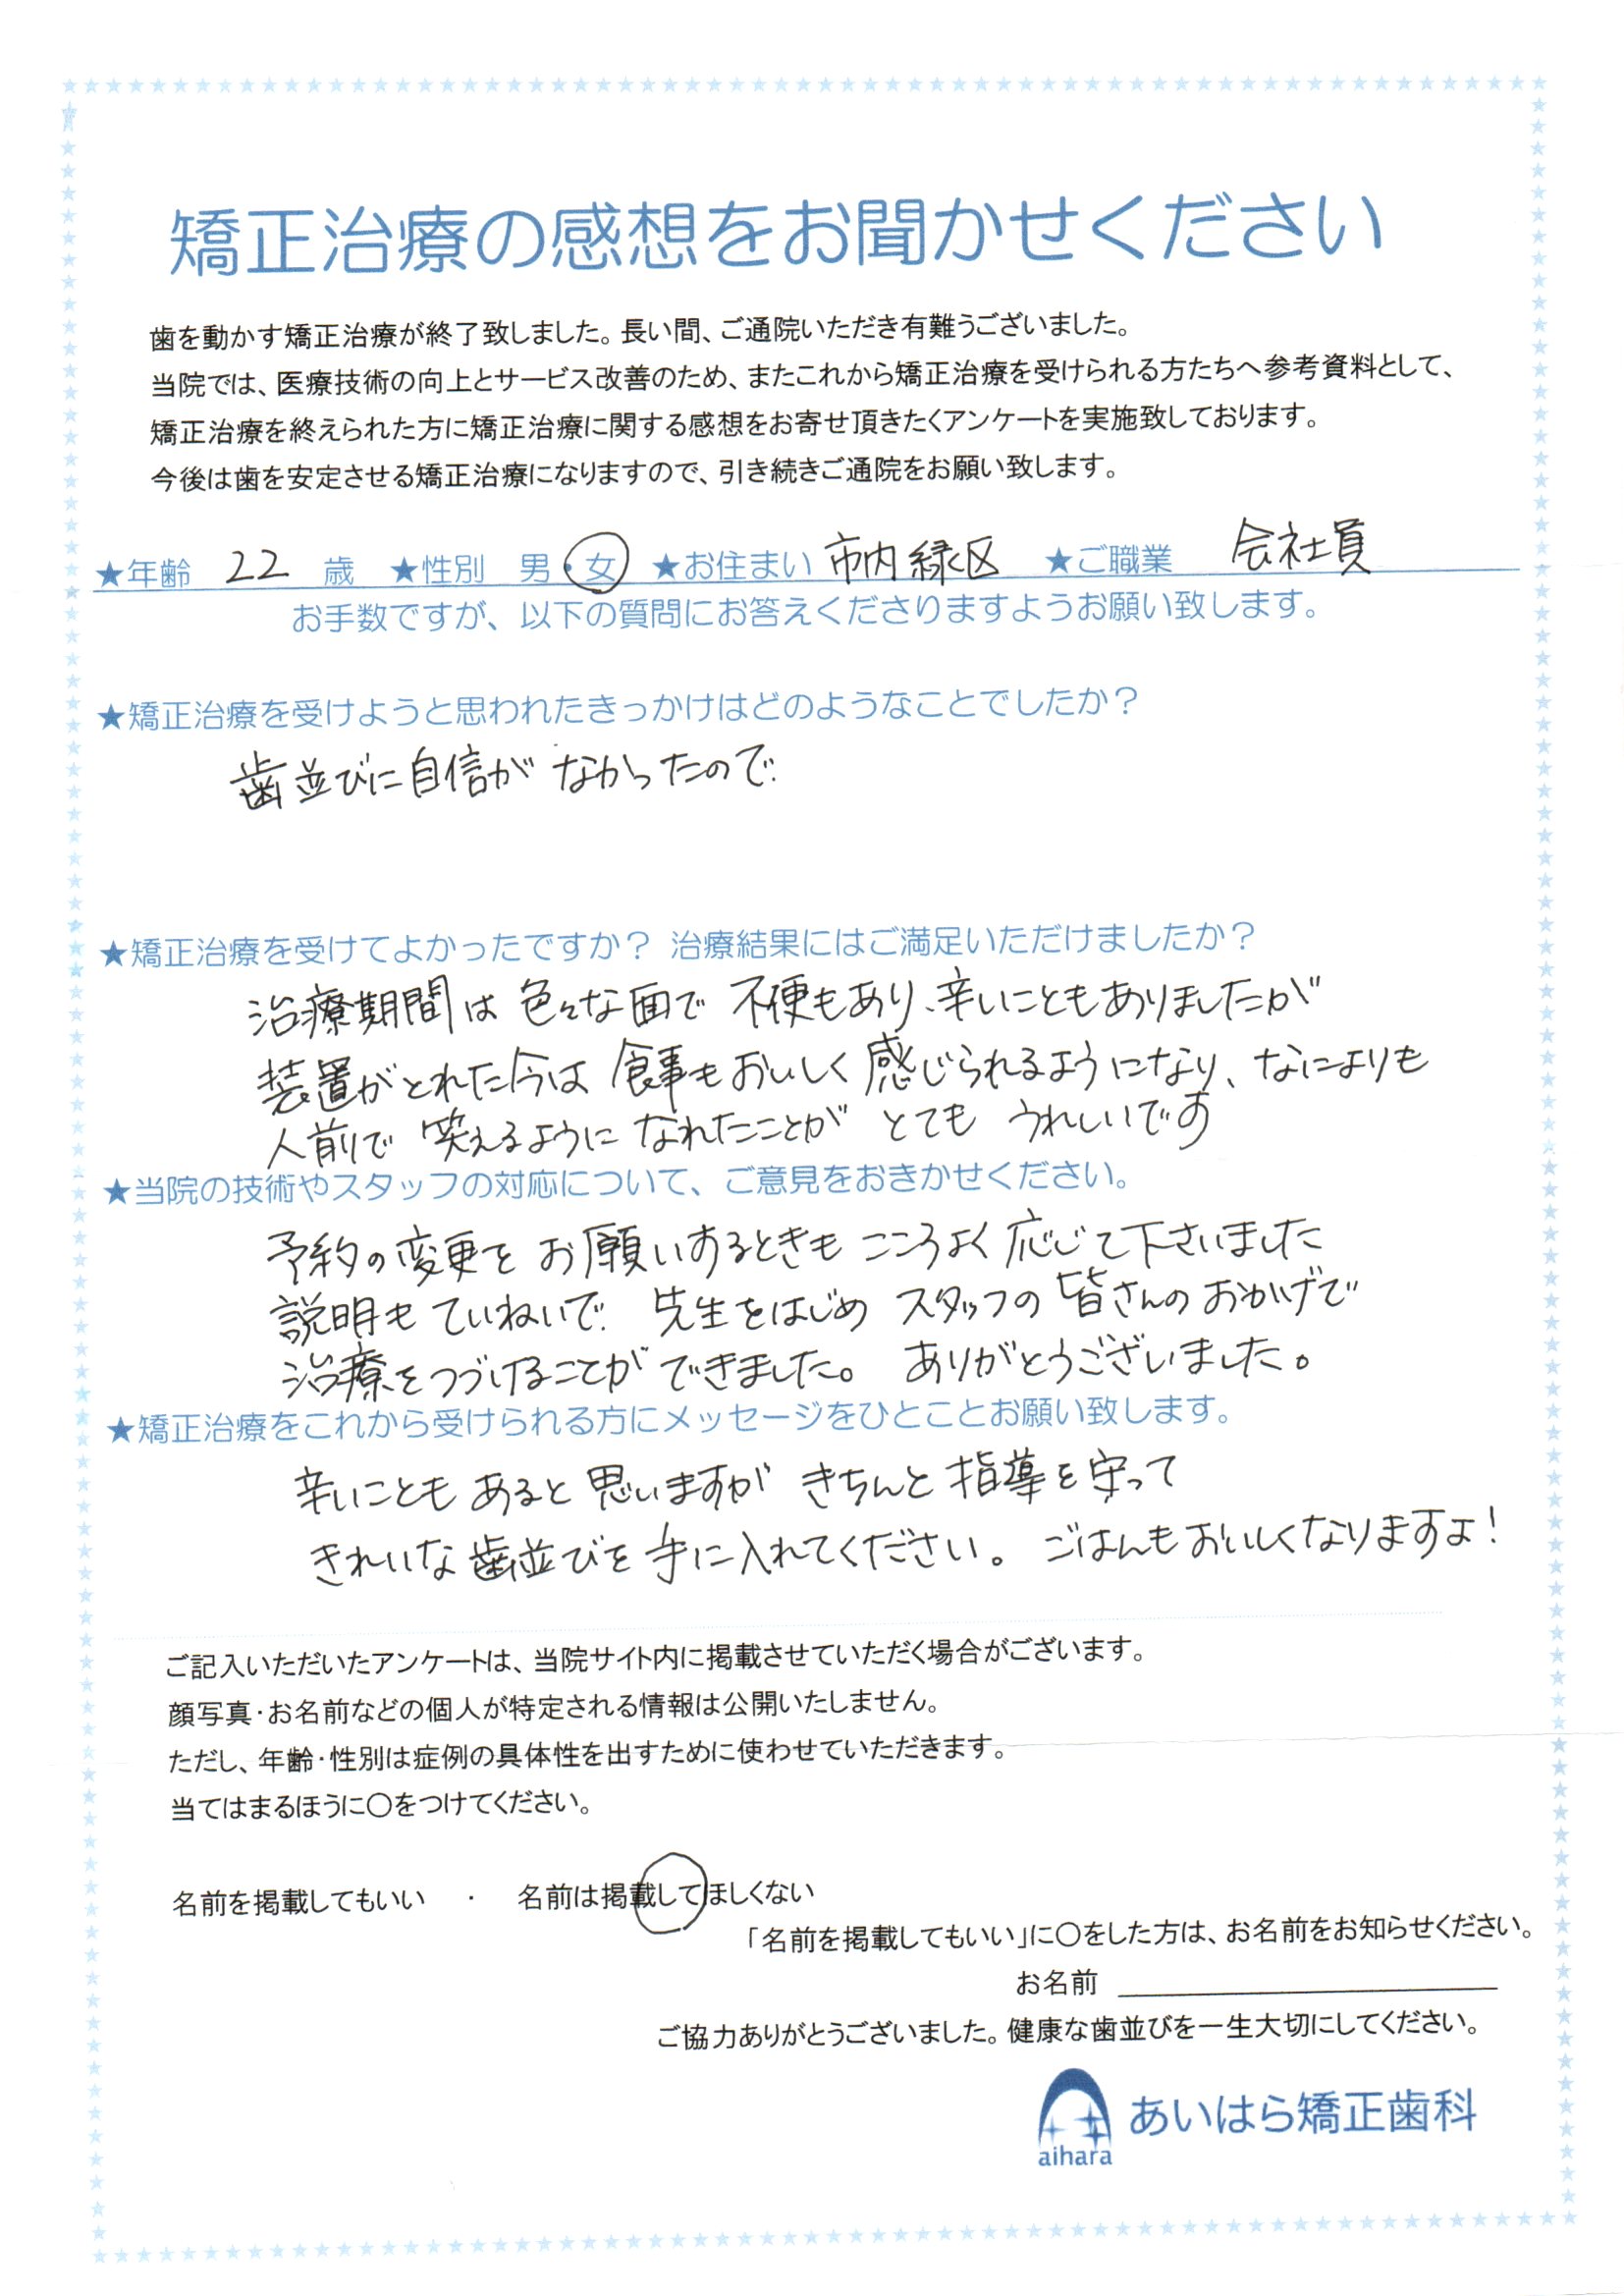 矯正治療の感想をお聞かせください
歯を動かす矯正治療が終了致しました。長い間、ご通院いただき有難うございました。
当院では、医療技術の向上とサービス改善のため、またこれから矯正治療を受けられる方たちへ参考資料として、
矯正治療を終えられた方に矯正治療に関する感想をお寄せ頂きたくアンケートを実施致しております。
今後は歯を安定させる矯正治療になりますので、引き続きご通院をお願い致します。
★年齢 22 歳 ★性別 男・女 ★お住まい 市内緑区 ★ご職業 会社員
お手数ですが、以下の質問にお答えくださりますようお願い致します。
★矯正治療を受けようと思われたきっかけはどのようなことでしたか？
歯並びに自信がなかったので.
★矯正治療を受けてよかったですか？ 治療結果にはご満足いただけましたか？
治療期間は色々な面で不便もあり、辛いこともありましたが
装置がとれた今は食事もおいしく感じられるようになり、なによりも
人前で笑えるようになれたことがとてもうれしいです
★当院の技術やスタッフの対応について、ご意見をおきかせください。
予約の変更をお願いするときもこころよく応じて下さいました
説明もていねいで. 先生をはじめスタッフの皆さんのおかげで
治療をつづけることができました。 ありがとうございました。
★矯正治療をこれから受けられる方にメッセージをひとことお願い致します。
辛いこともあると思いますがきちんと指導を守って
きれいな歯並びを手に入れてください。ごはんもおいしくなりますよ！
ご記入いただいたアンケートは、当院サイト内に掲載させていただく場合がございます。
顔写真・お名前などの個人が特定される情報は公開いたしません。
ただし、年齢・性別は症例の具体性を出すために使わせていただきます。
当てはまるほうに〇をつけてください。
名前を掲載してもいい ・ 名前は掲載してほしくない
「名前を掲載してもいい」に〇をした方は、お名前をお知らせください。
お名前
ご協力ありがとうございました。健康な歯並びを一生大切にしてください。
aihara あいはら矯正歯科